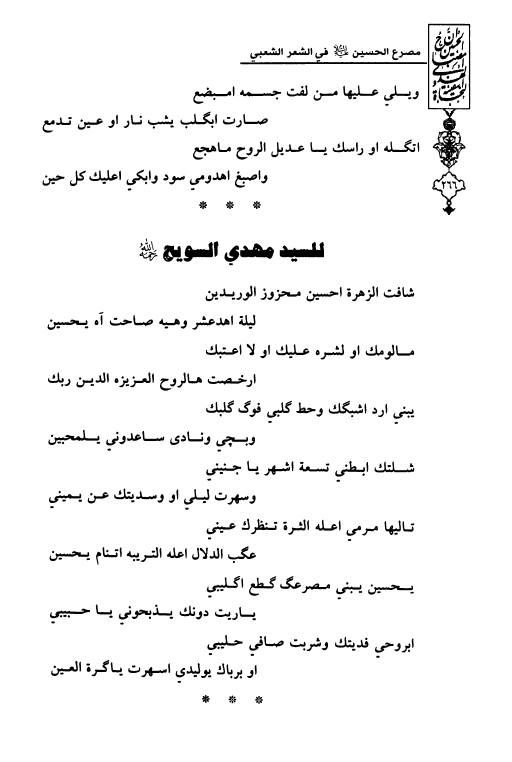 مصرع الحسين ﷺ في الشعر الشعبي
٢٦٦
ويـلي عـليها مـن لفت جـسـمه امـبضع
صـارت ابگـلب يشب نـار او عـين تـدمع
اتگـله او راسك يـا عـديل الروح مـاهجع
واصبغ اهدومي سود وابكي اعليك كل حين
* * *
للسيد مهدي السويج
شافت الزهرة احسين مـحزوز الوريـدين
ليلة اهدعشر وهـيه صـاحت آه يـحسين
مـالومك او لشره عـليك او لا اعـتبك
ارخـصت هـالروح العـزيزه الديـن ربك
يبني ارد اشبگك وحط گلبي فوگ گلبك
وبـچي ونـادى سـاعدوني يـلمحبين
شـلتك ابـطني تسعة اشهر يـا جـنيني
وسهرت ليـلي او وسديتك عـن يـميني
تـاليها مـرمي اعـله الثرة تـنظرك عـيني
عگب الدلال اعله التريبه اتـنام يـحسين
يـحسين يـبني مـصرعگ گـطع اگـليبي
يـاريت دونك يـذبحوني يـا حـبيبي
ابروحي فديتك وشربت صـافي حـليبي
او برباك يوليدي اسهرت يـاگرة العـين
* * *